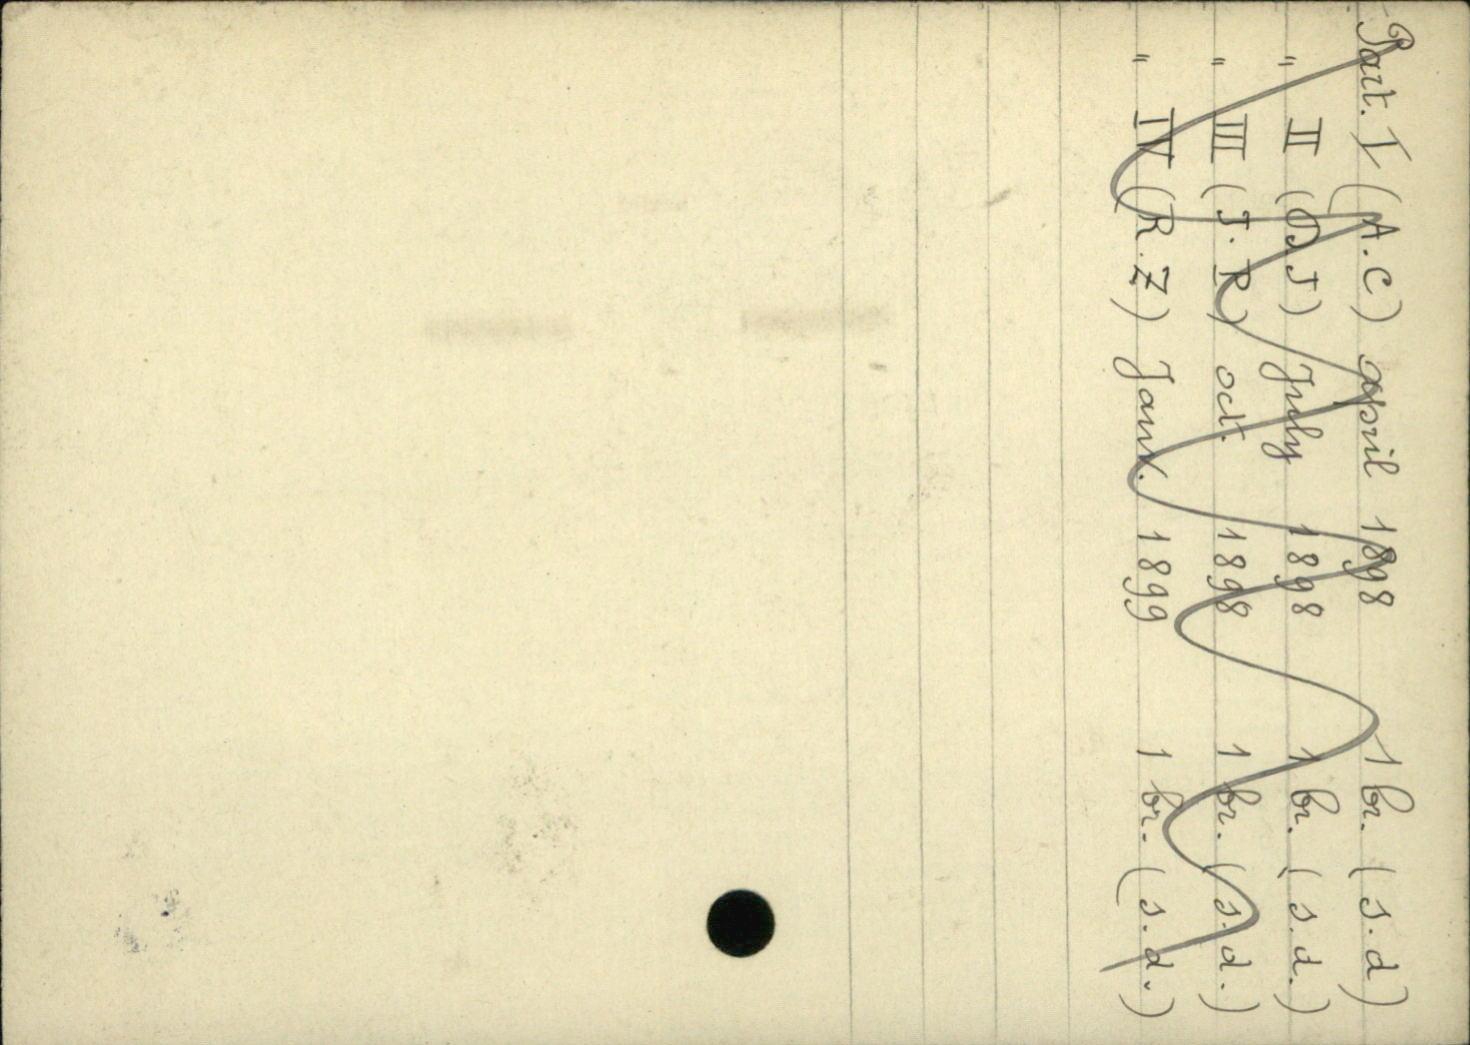 Part. I (A.C) april 1898 1 br. (s.d)
" II (D J) July 1898 1 br. (s.d.)
" III (J. R) oct. 1898 1 br. (s.d.)
" IV (R.Z) Janv. 1899 1 br. (s.d.)